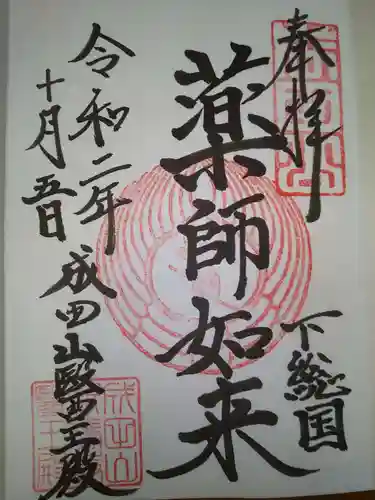 奉拝
下總国
薬師如来
成田山醫王殿
令和二年
十月五日
成田山